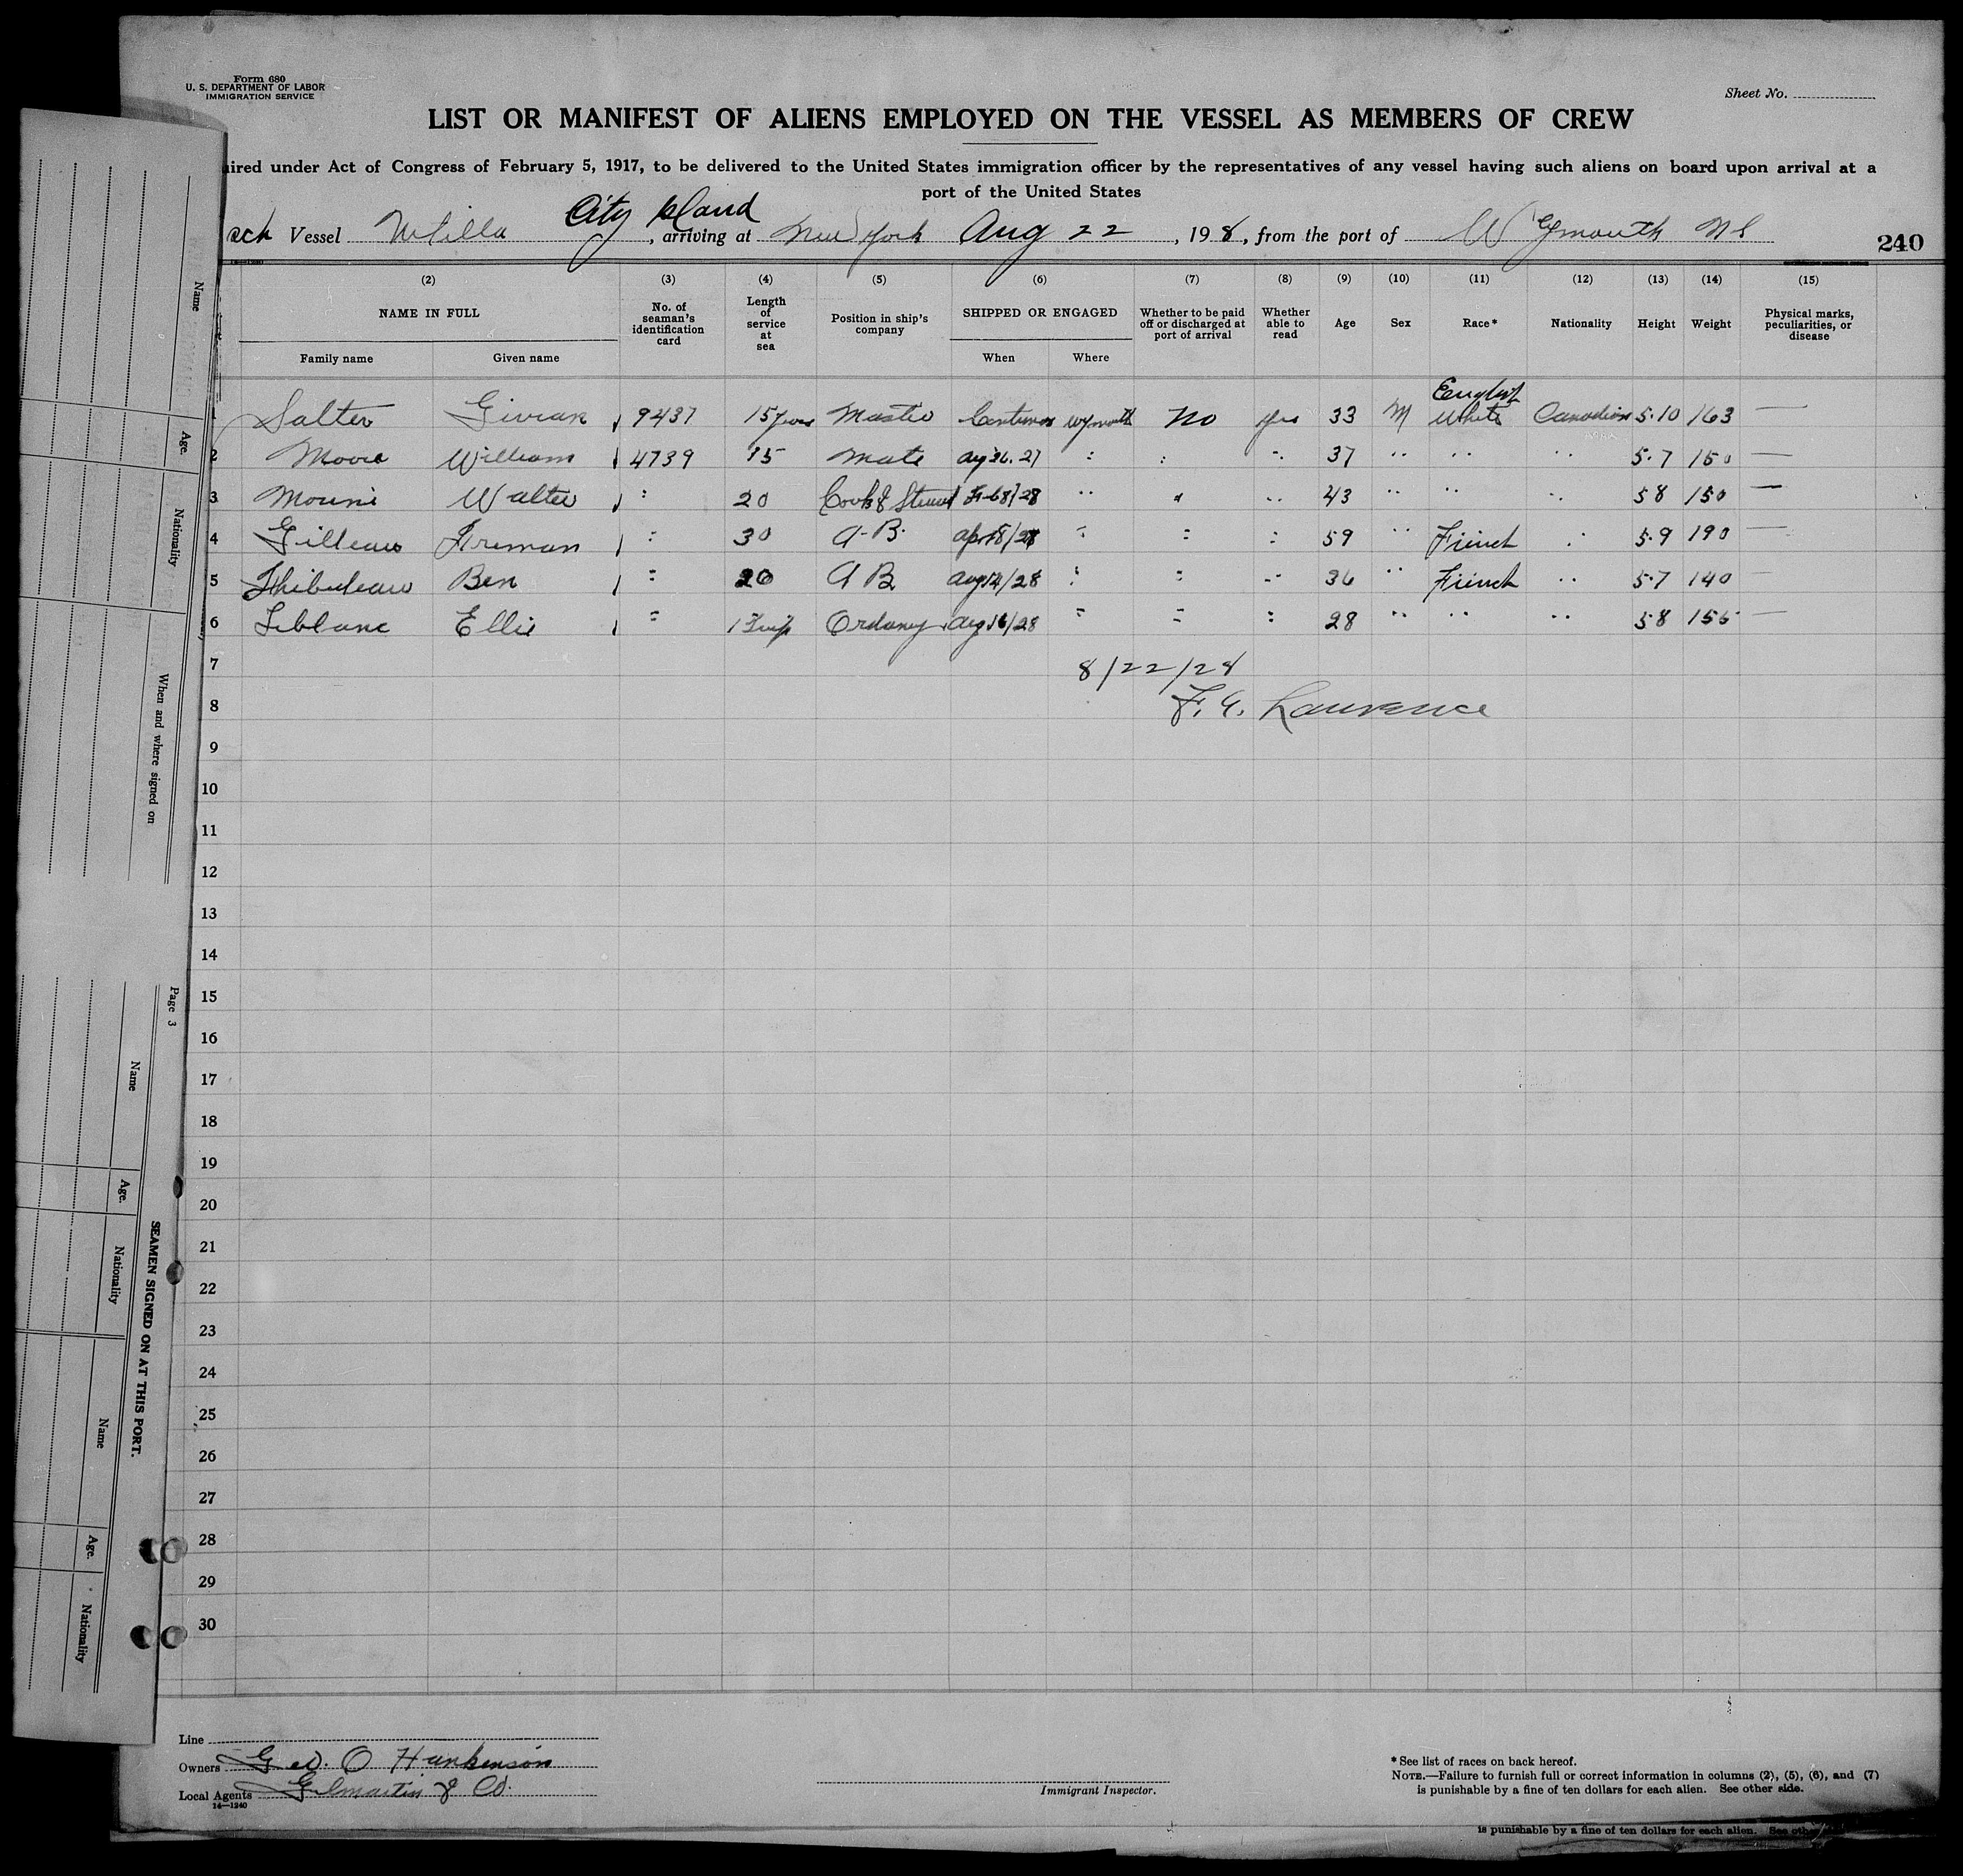 Form 680
U. S. DEPARTMENT OF LABOR
IMMIGRATION SERVICE
Sheet No.
LIST OR MANIFEST OF ALIENS EMPLOYED ON THE VESSEL AS MEMBERS OF CREW
uired under Act of Congress of February 5, 1917, to be delivered to the United States immigration officer by the representatives of any vessel having such aliens on board upon arrival at a
port of the United States
City Island
sch Vessel , arriving at New York Aug 22 , 198 , from the port of Wymouth NS
240
(2) (3) (4) (5) (6) (7) (8) (9) (10) (11) (12) (13) (14) (15)
NAME IN FULL No. of seaman's identification card Length of service at sea Position in ship's company SHIPPED OR ENGAGED Whether to be paid off or discharged at port of arrival Whether able to read Age Sex Race* Nationality Height Weight Physical marks, peculiarities, or disease
Family name Given name When Where
English
1 Salter 9437 15 years Master Wymouth No yes 33 M White Canadian 5.10 163 —
2 Moore William 4739 15 Mate 27 37 5.7 150 —
3 Walter 20 Cook & Steward 28 43 5 8 150 —
4 Fireman 30 A.B. 59 French 5.9 190 —
5 Thibideau Ben 20 A B Aug 14/28 36 French 5.7 140 —
6 Leblanc Ellie 1 Trip Ordany Aug 16/28 28 5 8 155 —
7 8/22/28
8 F. A. Lawrence
9
10
11
12
13
14
15
16
17
18
19
20
21
22
23
24
25
26
27
28
29
30
Line
Owners Geo. O Hankenson
Local Agents Gilmartin & Co.
14—1240
Immigrant Inspector.
*See list of races on back hereof.
NOTE.—Failure to furnish full or correct information in columns (2), (5), (6), and (7)
is punishable by a fine of ten dollars for each alien. See other side.
is punishable by a fine of ten dollars for each alien. See other
Name
Age.
Nationality
When and where signed on
Page 3
SEAMEN SIGNED ON AT THIS PORT.
Name
Age.
Nationality
Name
Age.
Nationality